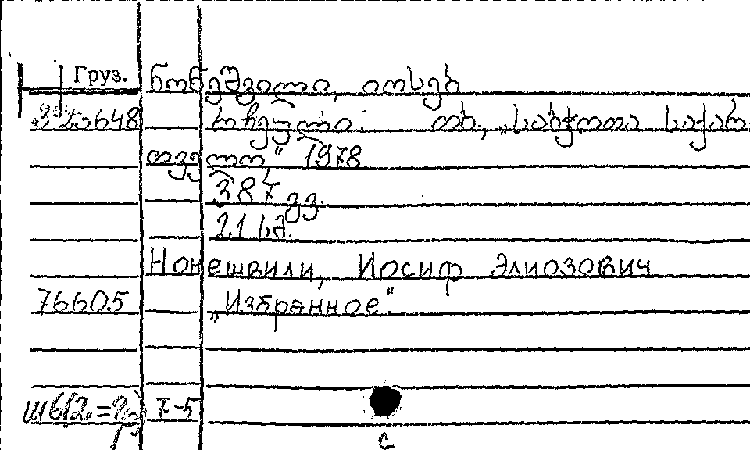 Груз. ნონეშვილი, იოსებ
რჩეული. თბ., „საბჭოთა საქარ
თველო,“ 1978
387 გვ.
Нонешвили, Иосиф Элиозович
76605 „Избранное“.
7-5
с